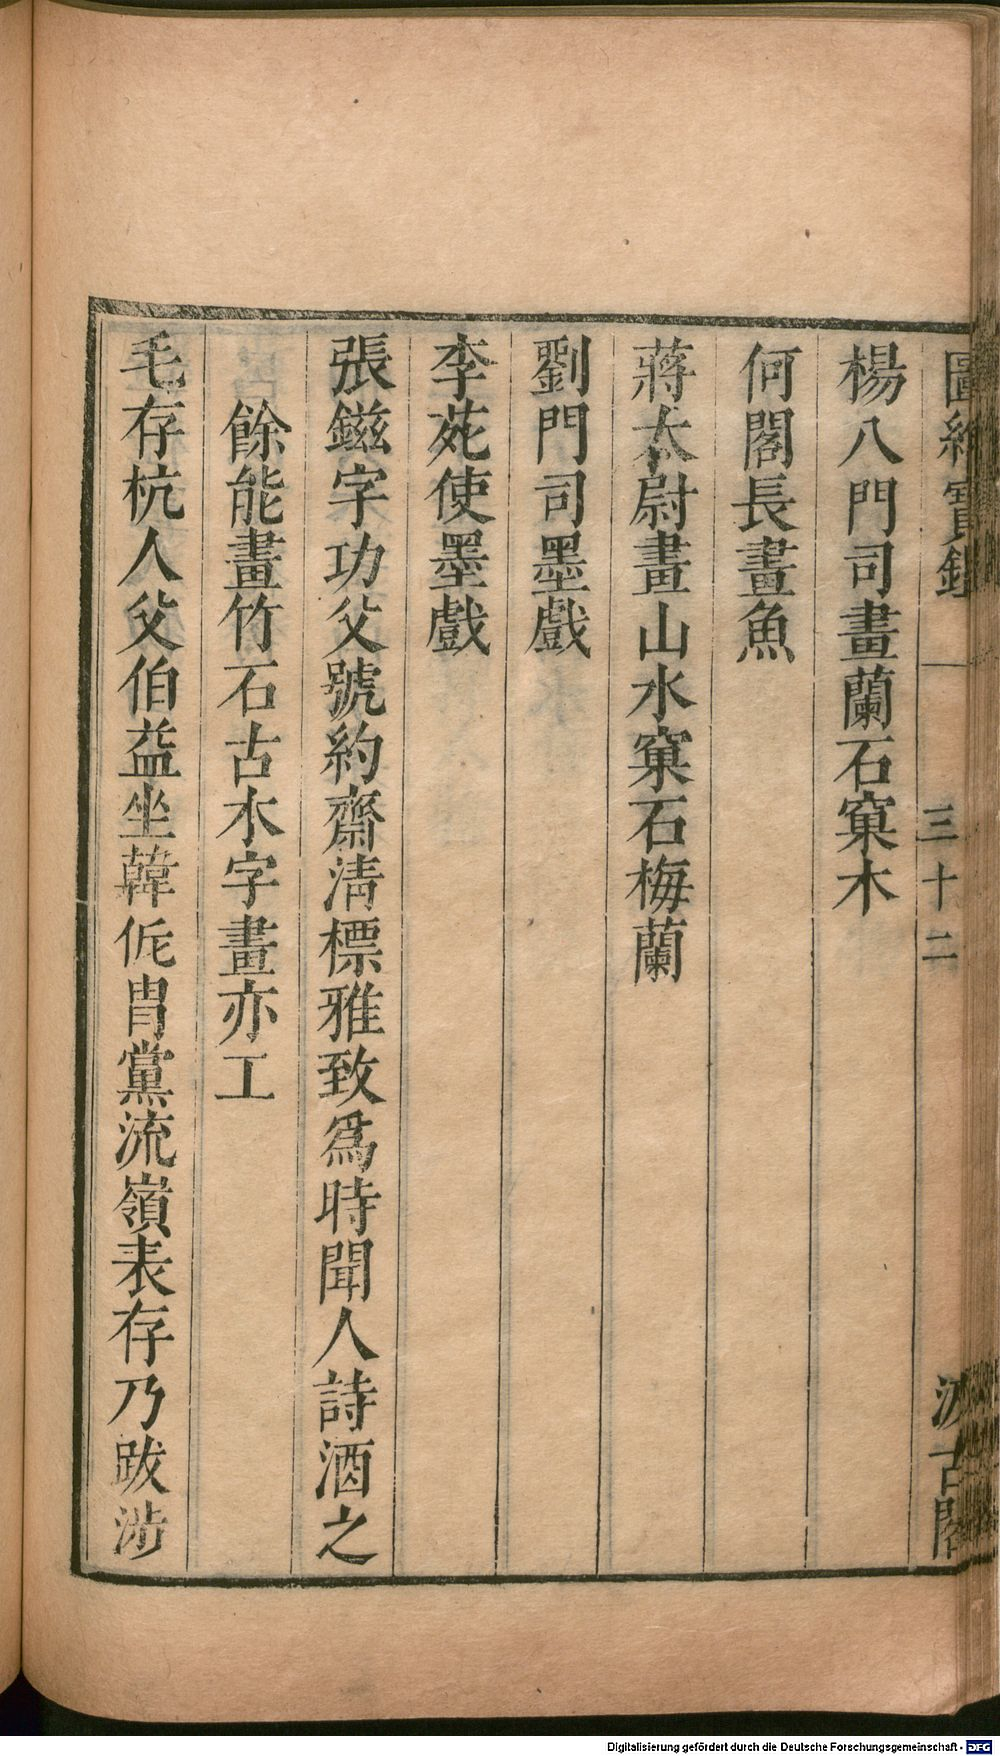 圖繪寶鑑 三十二 汲古閣
楊八門司畫蘭石窠木
何閣長畫魚
蔣太尉畫山水窠石梅蘭
劉門司墨戲
李苑使墨戲
張鎡字功父號約齋清標雅致爲時聞人詩酒之
餘能畫竹石古木字畫亦工
毛存杭人父伯益坐韓侂胄黨流嶺表存乃跋涉
Digitalisierung gefördert durch die Deutsche Forschungsgemeinschaft - DFG